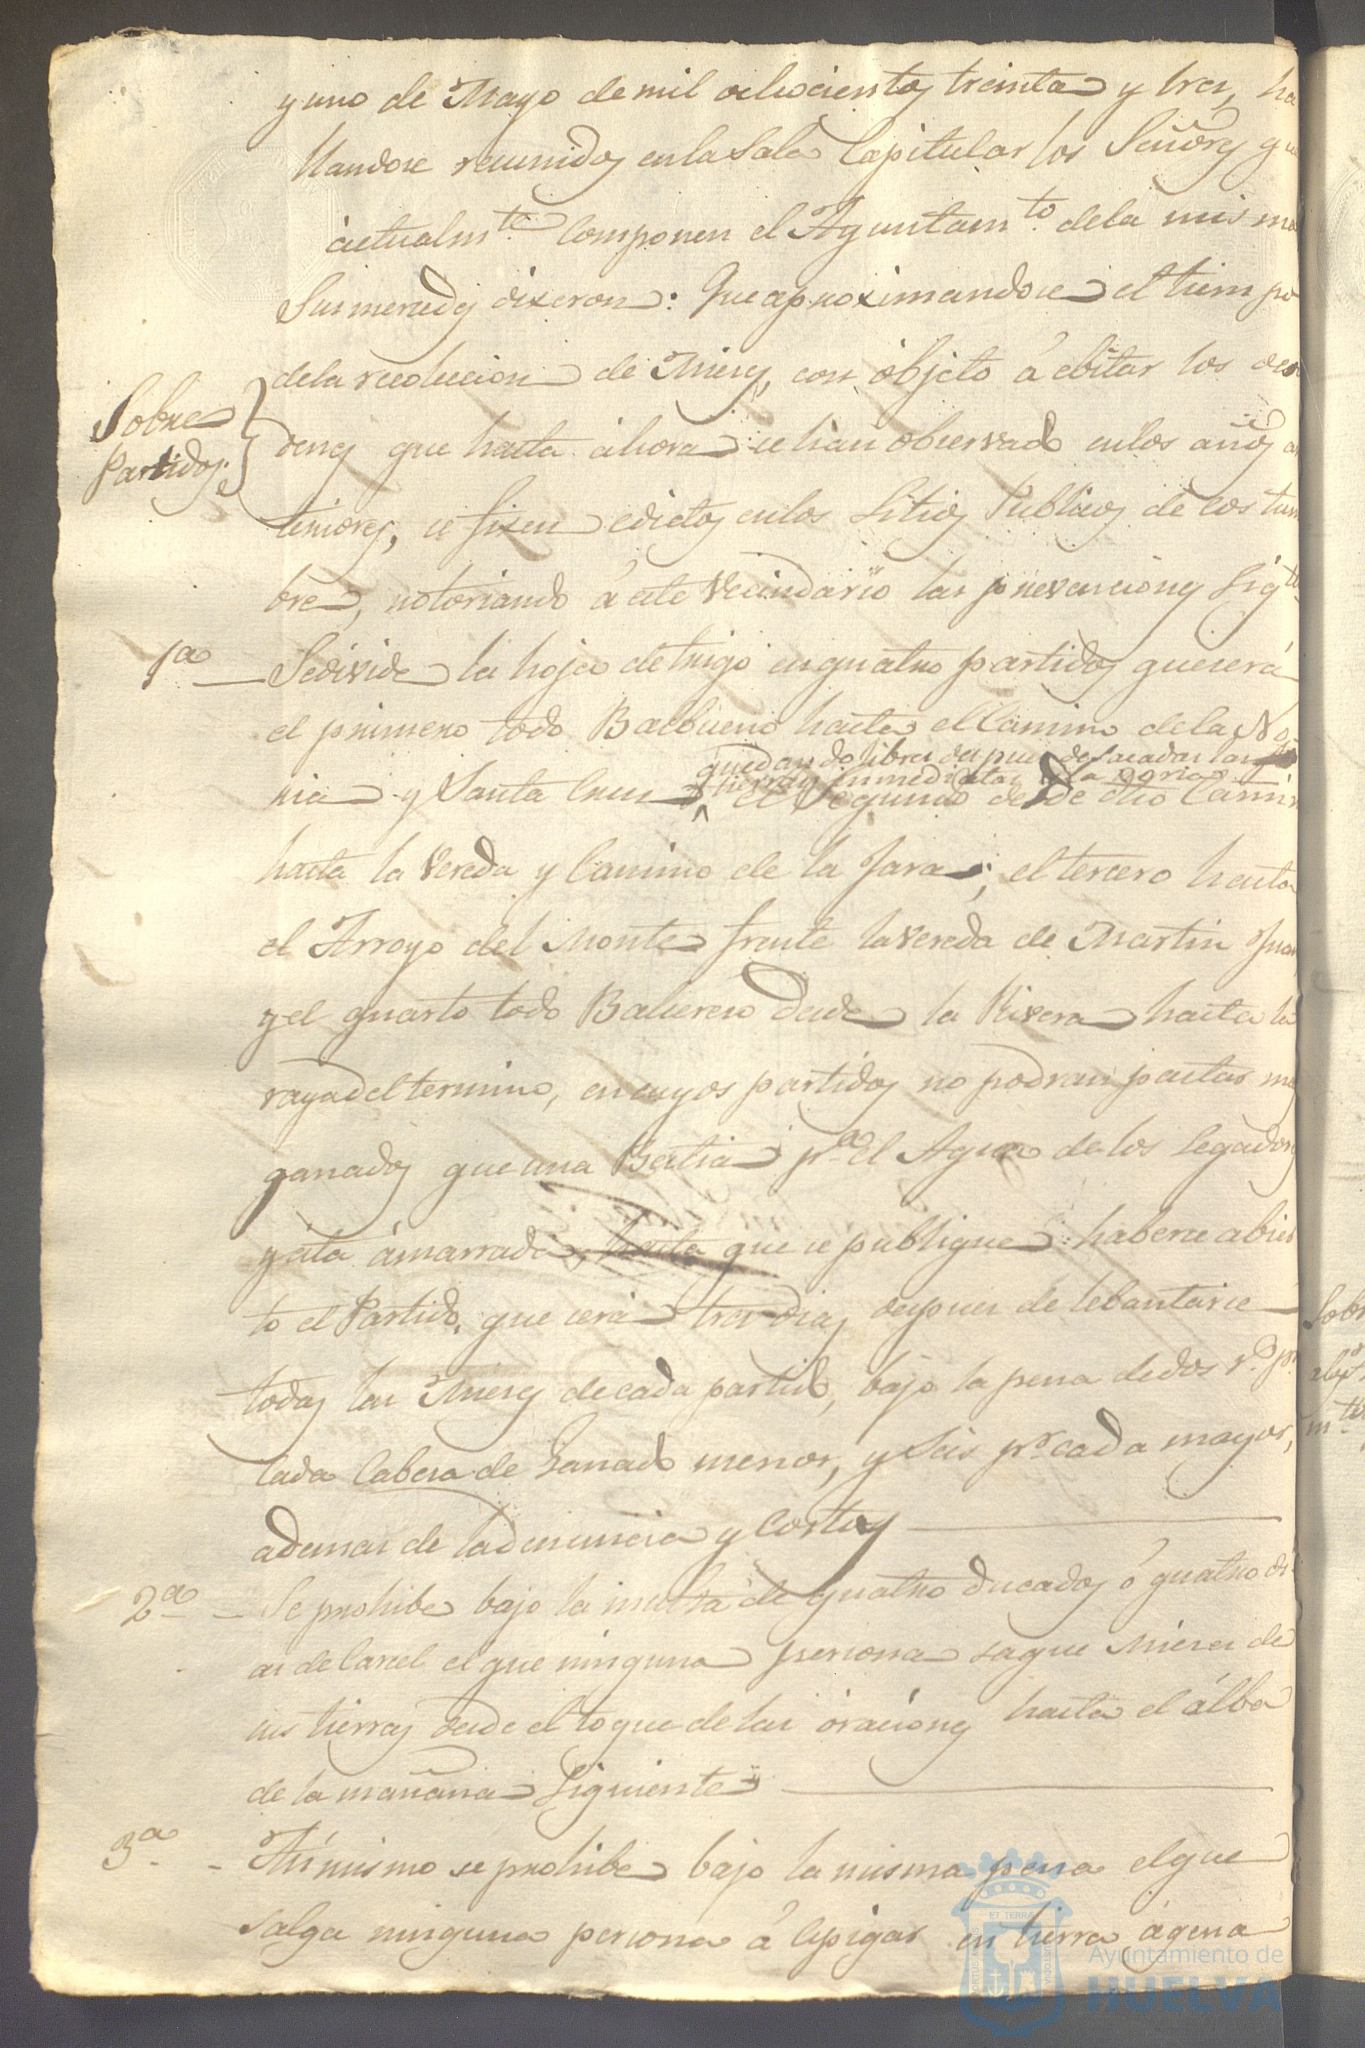 y uno de Mayo de mil ochocientos treinta y tres, ha
llandose reunidos en la Sala Capitular los Señores que
actualm.te componen el Ayuntam.to de la misma
Sus mercedes dixeron: Que aproximandose el tiempo
de la recoleccion de Mieses, con objeto á ebitar los desor
Sobre
Partidos.
denes que hasta ahora se han observado en los años an
teriores, se fixen edictos en los Sitios Publicos de costum
bre, notoriando á este Vecindario las prevenciones Sig.tes
1.a Se divide la hoja de trigo en quatro partidos que será
el primero todo Balbueno hasta el Camino de la No
quedando libres despues de sacadas las
tierras inmediatas á la Noria
ria y Santa Cruz, el Segundo desde dho Camino
hasta la Vereda y Camino de la Jara; el tercero hasta
el Arroyo del Monte frente la Vereda de Martin Juan
y el quarto todo desde la Rivera hasta la
raya del termino, en cuyos partidos no podran pastar mas
ganados que una Bestia p.a el Agua de los Segadores
y esta ámarrada, hasta que se publique haberse abier
to el Partido, que será tres dias despues de lebantarse
todas las Mieses de cada partido, bajo la pena de dos r.s p.r
cada Cabesa de Ganado menor, y Seis p.r cada mayor,
ademas de la denuncia y Costas
2.a Se prohibe bajo la multa de quatro ducados ó quatro di
as de Carcel el que ninguna persona saque Mieses de
sus tierras desde el toque de las óraciones hasta el álba
de la mañana Siguiente
3.a Asi mismo se prohibe bajo la misma pena el que
salga ninguna persona á Espigar en tierra ágena
Sobr
m.te
ET TERRÆ
PORTUS MARIS
CUSTODIA
Ayuntamiento de
HUELVA